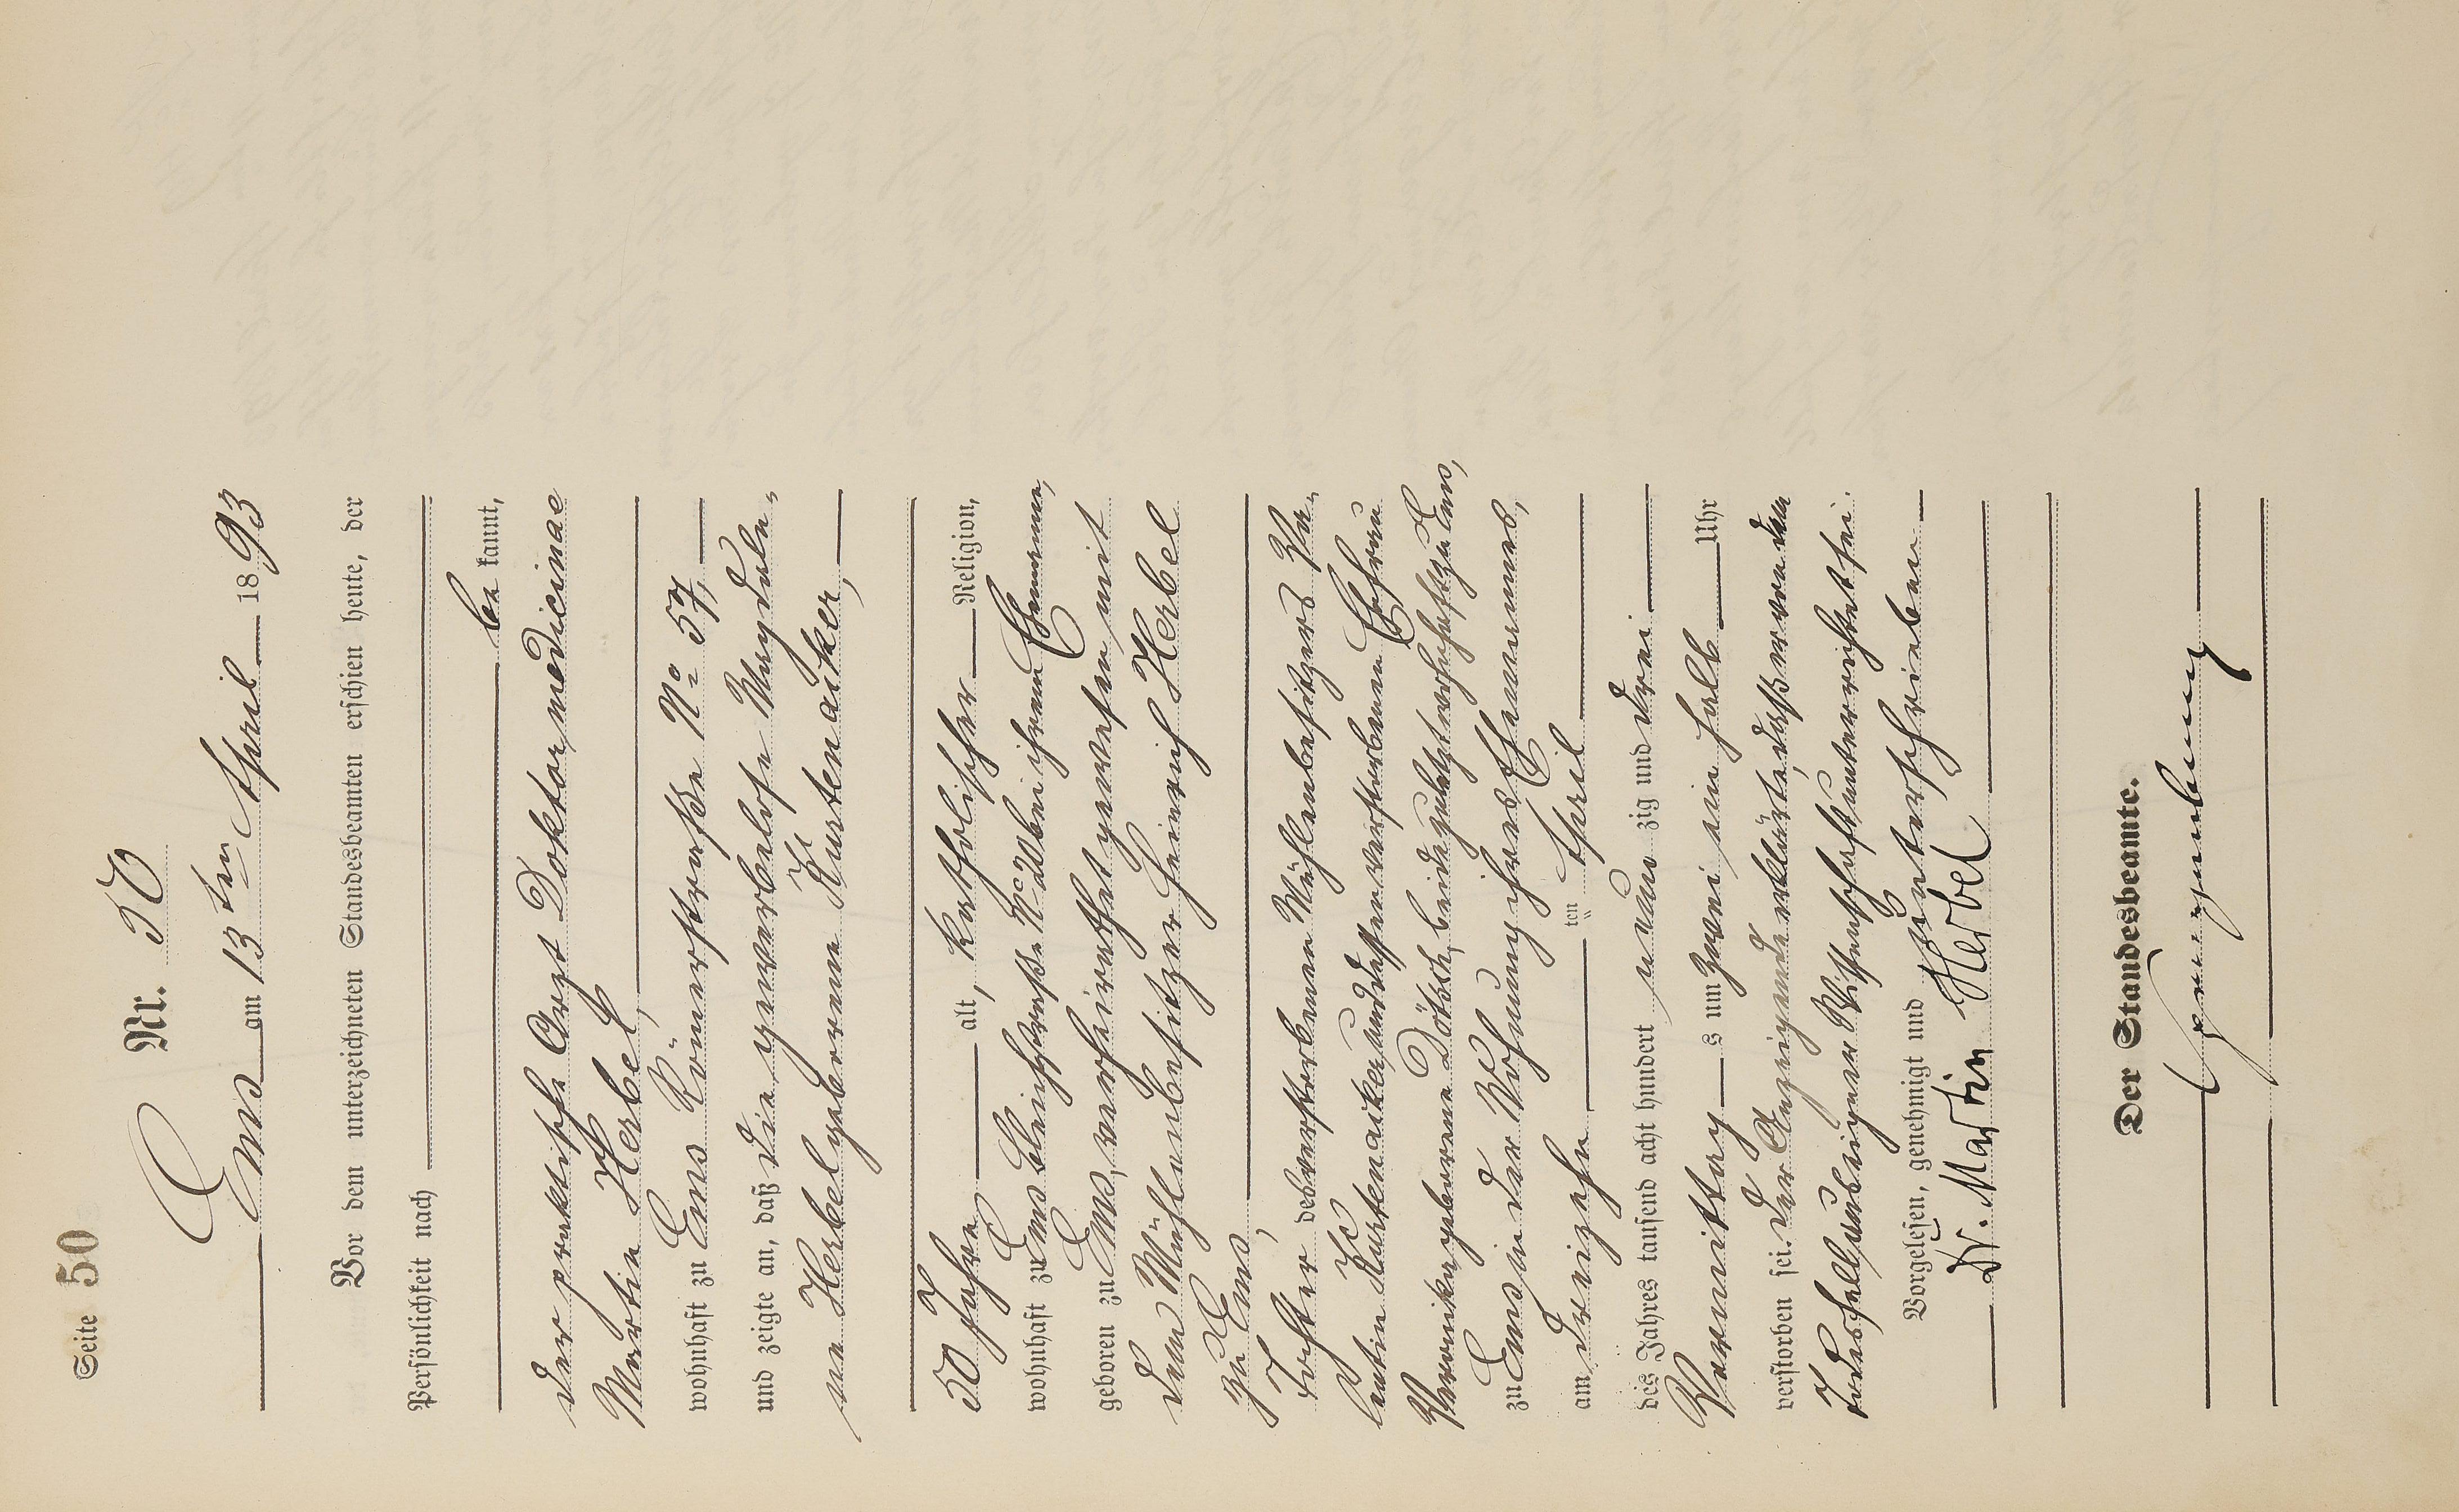 Seite 50
Nr. 50
Ems am 13ten April 1893
Vor dem unterzeichneten Standesbeamten erschien heute, der
Persönlichkeit nach
be kannt,
der praktische Arzt Doktor medicinae
Martin Herbel,
wohnhaft zu Ems Römerstraße No 57,
und zeigte an, daß die gewerbelose Magdale-
na Herbel geborene Kurtenaiker,
50 Jahre alt, katholischer Religion,
wohnhaft zu Ems Bleichstraße No 20 bei ihrem Ehemanne,
geboren zu Ems, verheirathet gewesen mit
dem Mühlenbesitzer Heinrich Herbel
zu Ems,
Tochter des verstorbenen Mühlenbesitzers Va-
lentin Kurtenaiker und dessen verstorbenen Ehefrau
Veronika geborene Dötsch, beide zuletzt wohnhaft zu Ems,
zu Ems in der Wohnung ihres Ehemannes,
am dreizehn ten April
des Jahres tausend acht hundert neun zig und drei
Vormittags um zwei ein halb Uhr
verstorben sei. Der Anzeigende erklärte, daß er von dem
Todesfall aus eigener Wissenschaft unterrichtet sei.
Vorgelesen, genehmigt und unterschrieben
Dr. Martin Herbel
Der Standesbeamte.